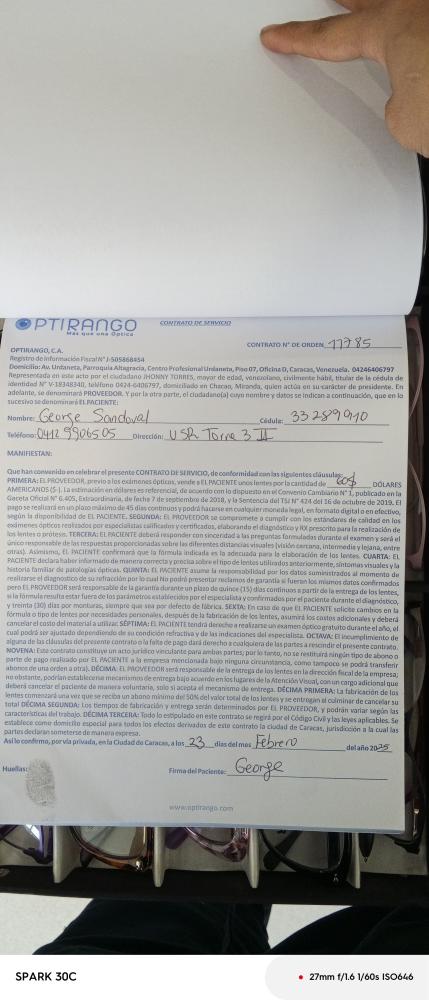 OPTIRANGO
Más que una Óptica
CONTRATO DE SERVICIO
CONTRATO N° DE ORDEN 11785
OPTIRANGO, C.A.
Registro de Información Fiscal N° J-505868454
Domicilio: Av. Urdaneta, Parroquia Altagracia, Centro Profesional Urdaneta, Piso 07, Oficina D, Caracas, Venezuela. 04246406797
Representada en este acto por el ciudadano JHONNY TORRES, mayor de edad, venezolano, civilmente hábil, titular de la cédula de
identidad N° V-18348340, teléfono 0424-6406797, domiciliado en Chacao, Miranda, quien actúa en su carácter de presidente. En
adelante, se denominará PROVEEDOR. Y por la otra parte, el ciudadano(a) cuyo nombre y datos se indican a continuación, que en lo
sucesivo se denominará EL PACIENTE:
Nombre: George Sandoval Cédula: 33289910
Teléfono: 0412 9906505 Dirección: USR Torre 3 II
MANIFIESTAN:
Que han convenido en celebrar el presente CONTRATO DE SERVICIO, de conformidad con las siguientes cláusulas:
PRIMERA: EL PROVEEDOR, previo a los exámenes ópticos, vende a EL PACIENTE unos lentes por la cantidad de 60$ DÓLARES
AMERICANOS ($-). La estimación en dólares es referencial, de acuerdo con lo dispuesto en el Convenio Cambiario N° 1, publicado en la
Gaceta Oficial N° 6.405, Extraordinaria, de fecha 7 de septiembre de 2018, y la Sentencia del TSJ N° 424 del 16 de octubre de 2019. El
pago se realizará en un plazo máximo de 45 días continuos y podrá hacerse en cualquier moneda legal, en formato digital o en efectivo,
según la disponibilidad de EL PACIENTE. SEGUNDA: EL PROVEEDOR se compromete a cumplir con los estándares de calidad en los
exámenes ópticos realizados por especialistas calificados y certificados, elaborando el diagnóstico y RX prescrito para la realización de
los lentes o prótesis. TERCERA: EL PACIENTE deberá responder con sinceridad a las preguntas formuladas durante el examen y será el
único responsable de las respuestas proporcionadas sobre las diferentes distancias visuales (visión cercana, intermedia y lejana, entre
otras). Asimismo, EL PACIENTE confirmará que la fórmula indicada es la adecuada para la elaboración de los lentes. CUARTA: EL
PACIENTE declara haber informado de manera correcta y precisa sobre el tipo de lentes utilizados anteriormente, síntomas visuales y la
historia familiar de patologías ópticas. QUINTA: EL PACIENTE asume la responsabilidad por los datos suministrados al momento de
realizarse el diagnostico de su refracción por lo cual No podrá presentar reclamos de garantía si fueran los mismos datos confirmados
pero EL PROVEEDOR será responsable de la garantía durante un plazo de quince (15) días continuos a partir de la entrega de los lentes,
si la fórmula resulta estar fuera de los parámetros establecidos por el especialista y confirmados por el paciente durante el diagnóstico,
y treinta (30) días por monturas, siempre que sea por defecto de fábrica. SEXTA: En caso de que EL PACIENTE solicite cambios en la
fórmula o tipo de lentes por necesidades personales, después de la fabricación de los lentes, asumirá los costos adicionales y deberá
cancelar el costo del material a utilizar. SÉPTIMA: EL PACIENTE tendrá derecho a realizarse un examen óptico gratuito durante el año, el
cual podrá ser ajustado dependiendo de su condición refractiva y de las indicaciones del especialista. OCTAVA: El incumplimiento de
alguna de las cláusulas del presente contrato o la falta de pago dará derecho a cualquiera de las partes a rescindir el presente contrato.
NOVENA: Este contrato constituye un acto jurídico vinculante para ambas partes; por lo tanto, no se restituirá ningún tipo de abono o
parte de pago realizado por EL PACIENTE a la empresa mencionada bajo ninguna circunstancia, como tampoco se podrá transferir
abonos de una orden a otra). DÉCIMA: EL PROVEEDOR será responsable de la entrega de los lentes en la dirección fiscal de la empresa;
no obstante, podrían establecerse mecanismos de entrega bajo acuerdo en los lugares de la Atención Visual, con un cargo adicional que
deberá cancelar el paciente de manera voluntaria, solo si acepta el mecanismo de entrega. DÉCIMA PRIMERA: La fabricación de los
lentes comenzará una vez que se reciba un abono mínimo del 50% del valor total de los lentes y se entregan al culminar de cancelar su
total DÉCIMA SEGUNDA: Los tiempos de fabricación y entrega serán determinados por EL PROVEEDOR, y podrán variar según las
características del trabajo. DÉCIMA TERCERA: Todo lo estipulado en este contrato se regirá por el Código Civil y las leyes aplicables. Se
establece como domicilio especial para todos los efectos derivados de este contrato la ciudad de Caracas, jurisdicción a la cual las
partes declaran someterse de manera expresa.
Así lo confirme, por vía privada, en la Ciudad de Caracas, a los 23 días del mes Febrero del año 2025
Huellas: Firma del Paciente: George
www.optirango.com
SPARK 30C
27mm f/1.6 1/60s ISO646